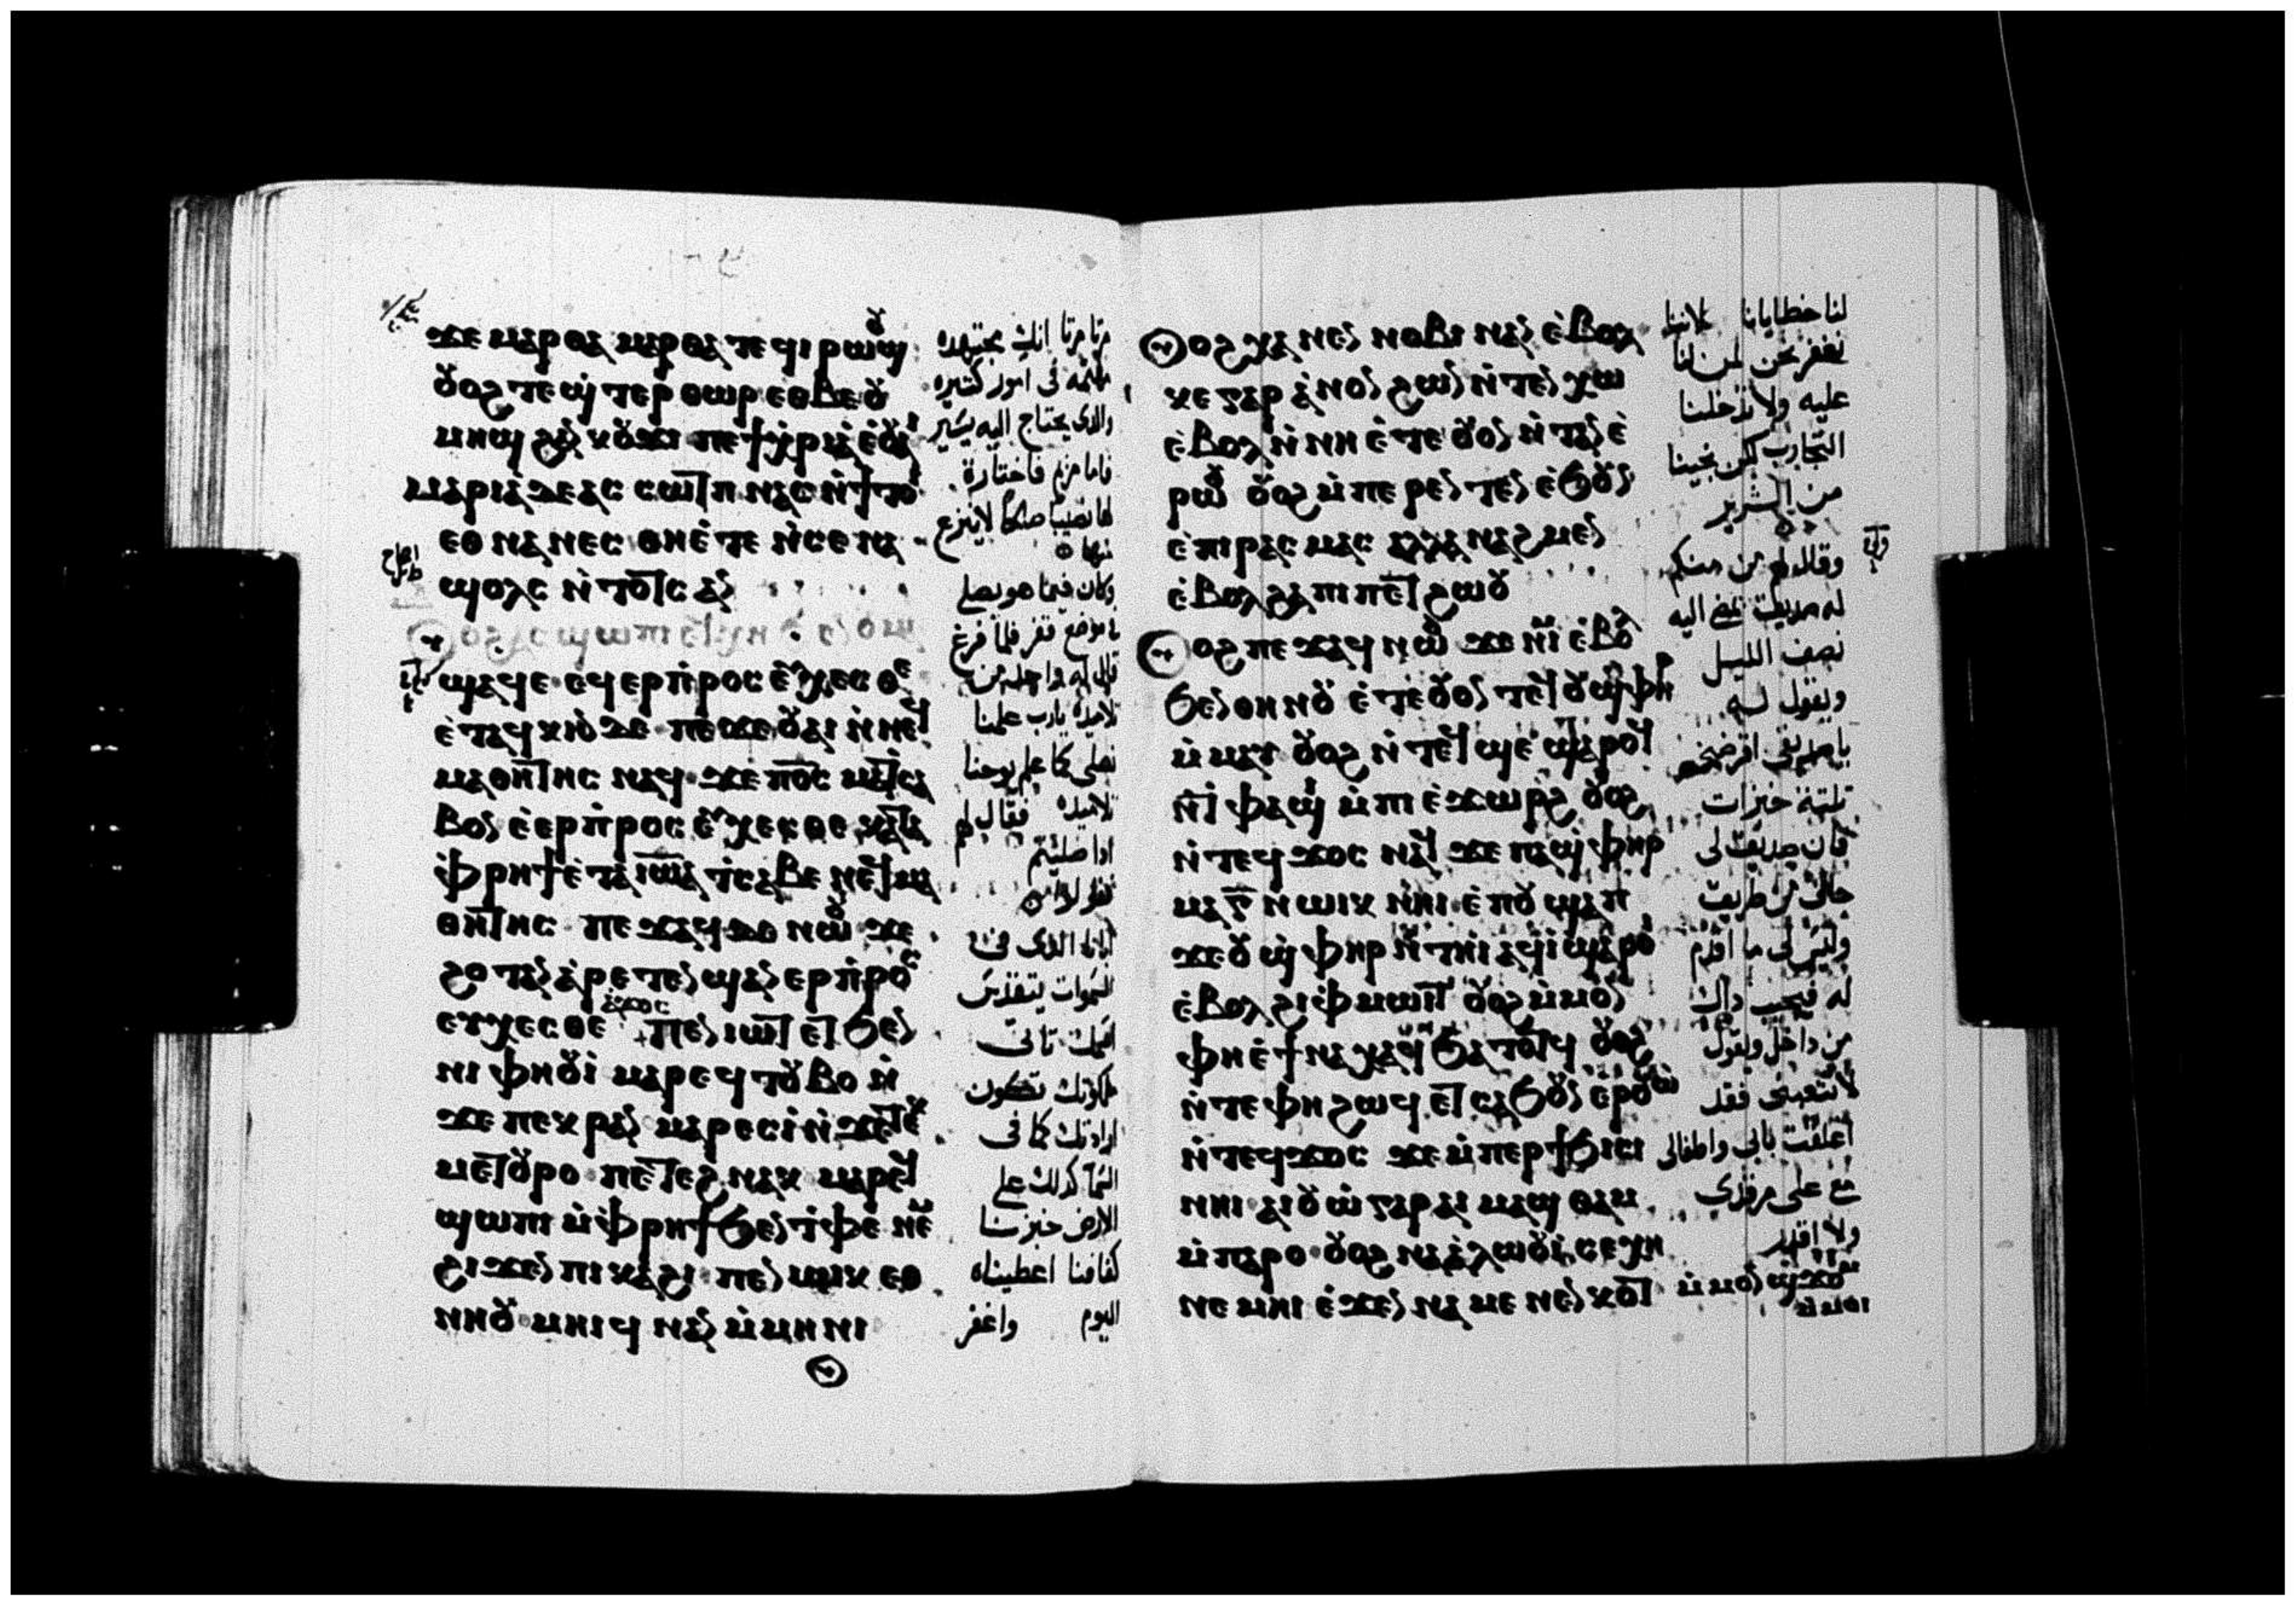 ϫⲉ ⲙⲁⲣⲑⲁ ⲙⲁⲣⲑⲁ ⲧⲉϥⲓⲣⲱⲟⲩϣ
ⲟⲩⲟϩ ⲧⲉϣⲧⲉⲣⲑⲱⲣ ⲉⲑⲃⲉ ⲟⲩ
ⲙⲏϣ
ⲙⲁⲣⲓⲁ ⲇⲉ ⲁⲥⲥⲱⲧⲡ ⲛⲁⲥ ⲛϯⲧⲟⲓ
ⲉⲑⲛⲁⲛⲉⲥ ⲑⲏ ⲉⲧⲉ ⲛⲥⲉⲛⲁ
ϣⲟⲗⲥ ⲛⲧⲟⲧⲥ ⲁⲛ
ⲟⲩⲟϩ ⲁⲥϣⲱⲡⲓ
ϥⲉ ⲉϥⲉⲣⲡⲣⲟⲥⲉⲩⲭⲉⲥⲑⲉ
ⲉⲧⲁϥⲭⲱ ⲇⲉ ⲡⲉϫⲉ ⲟⲩⲁⲓ ⲛⲛⲉϥ
ⲙⲁⲑⲏⲧⲏⲥ ⲛⲁϥ ϫⲉ ⲡⲟⲥ ⲙⲁⲧⲥⲁ
ⲃⲟⲛ ⲉⲉⲣⲡⲣⲟⲥⲉⲩⲭⲉⲥⲑⲉ ⲕⲁⲧⲁ
ⲫⲣⲏϯ ⲉⲧⲁ ⲓⲱⲁ ⲧⲥⲁⲃⲉ ⲛⲉϥⲙⲁ
ⲑⲏⲧⲏⲥ ⲡⲉϫⲁϥ ⲇⲉ ⲛⲱⲟⲩ ϫⲉ
ϩⲟⲧⲁⲛ ⲁⲣⲉⲧⲉⲛϣⲁⲛⲉⲣⲡⲣⲟⲥ
ⲉⲩⲭⲉⲥⲑⲉ ⲁϫⲟⲥ ⲡⲉⲛⲓⲱⲧ ⲉⲧϧⲉⲛ
ⲛⲓⲫⲏⲟⲩⲓ ⲙⲁⲣⲉϥⲧⲟⲩⲃⲟ ⲛ
ϫⲉ ⲡⲉⲕⲣⲁⲛ ⲙⲁⲣⲉⲥⲓ ⲛϫⲉ ⲧⲉⲕ
ⲙⲉⲧⲟⲩⲣⲟ ⲡⲉⲧⲉϩⲛⲁⲕ ⲙⲁⲣⲉϥ
ϣⲱⲡⲓ ⲙⲫⲣⲏϯ ϧⲉⲛ ⲧⲫⲉ ⲛⲉⲙ
ϩⲓϫⲉⲛ ⲡⲓⲕⲁϩⲓ ⲡⲉⲛⲱⲓⲕ ⲉⲑ
ⲛⲏⲟⲩ ⲙⲏⲓϥ ⲛⲁⲛ ⲙⲙⲏⲛⲓ
مرتا مرتا انك مجتهده
مهتمه فى امور كثيره
والذى يحتاج اليه يسير
فاما مريم فاختارة
لها نصيبا صالحا لا ينزع
منها
وكان فيما هو يصلى
فى موضع قفر فلما فرغ
قال له واحد من
تلاميذه يارب علمنا
نصلى كما علم يوحنا
تلاميذه فقال لهم
اذا صليتم
فقولوا
ابانا الذى فى
السموات يتقدس
اسمك تاتى
ملكوتك تكون
ارادتك كما فى
السما كذلك على
الارض خبزنا
كفافنا اعطيناه
اليوم واغفر
ⲟⲩⲟϩ ⲭⲁ ⲛⲉⲛⲛⲟⲃⲓ ⲛⲁⲛ ⲉⲃⲟⲗ
ⲕⲉ ⲅⲁⲣ ⲁⲛⲟⲛ ϩⲱⲛ ⲛⲧⲉⲛⲭⲱ
ⲉⲃⲟⲗ ⲛⲛⲏ ⲉⲧⲉ ⲟⲩⲟⲛ ⲛⲧⲁⲛ ⲉ
ⲣⲱⲟⲩ ⲟⲩⲟϩ ⲙⲡⲉⲣⲉⲛⲧⲉⲛ ⲉϧⲟⲩⲛ
ⲉⲡⲓⲣⲁⲥⲙⲁⲥ ⲁⲗⲗⲁ ⲛⲁϩⲙⲉⲛ
ⲉⲃⲟⲗ ϩⲁ ⲡⲓⲡⲉⲧϩⲱⲟⲩ
ⲟⲩⲟϩ ⲡⲉϫⲁϥ ⲛⲱⲟⲩ ϫⲉ ⲛⲓⲙ ⲉⲃⲟⲗ
ϧⲉⲛ ⲑⲏⲛⲟⲩ ⲉⲧⲉ ⲟⲩⲟⲛⲧⲉϥ ⲟⲩϣⲫⲏⲣ
ⲙⲙⲁⲩ ⲟⲩⲟϩ ⲛⲧⲉϥϣⲉ ϣⲁⲣⲟϥ
ⲛ ⲫⲁϣⲓ ⲙⲡⲓⲉϫⲱⲣϩ ⲟⲩⲟϩ
ⲛⲧⲉϥϫⲟⲥ ⲛⲁϥ ϫⲉ ⲡⲁϣⲫⲏⲣ
ⲙⲁ ⲅ ⲛⲱⲓⲕ ⲛⲏⲓ ⲉⲡⲟⲩϣⲁⲡ
ϫⲉ ⲟⲩϣⲫⲏⲣ ⲛⲧⲏⲓ ⲁϥⲓ ϣⲁⲣⲟⲓ
ⲉⲃⲟⲗ ϩⲓ ⲫⲙⲱⲓⲧ ⲟⲩⲟϩ ⲙⲙⲟⲛ
ⲫⲏ ⲉϯⲛⲁⲭⲁϥ ϧⲁⲧⲟⲧϥ ⲟⲩⲟϩ
ⲛⲧⲉ ⲫⲏ ϩⲱϥ ⲉⲧⲥⲁϧⲟⲩⲛ ⲉⲣⲟⲩⲱ
ⲛⲧⲉϥϫⲟⲥ ϫⲉ ⲙⲡⲉⲣϯϧⲓⲥⲓ
ⲛⲏⲓ ⲁⲓⲟⲩⲱ ⲅⲁⲣ ⲁⲓⲙⲁϣⲑⲁⲙ
ⲙⲡⲁⲣⲟ ⲟⲩⲟϩ ⲛⲁⲁⲗⲱⲟⲩⲓ ⲥⲉⲭⲏ
ⲛⲉⲙⲏⲓ ϩⲓϫⲉⲛ ⲛⲁⲙⲁⲛⲉⲛⲕⲟⲧ ⲙⲙⲟⲛ ϣϫⲟⲙ
ⲙⲙⲟⲓ
لنا خطايانا لاننا
نغفر نحن لمن لنا
عليه ولا تدخلنا
التجارب لكن نجينا
من الشرير
وقال لهم من منكم
له صديق يمضى اليه
نصف الليل
ويقول له
يا صديقى اقرضنى
ثلثة خبزات
فان صديق لى
جاانى من طريق
وليس لى ما اقدم
له فيجيب ذاك
من داخل ويقول
لا تتعبنى فقد
اغلقت بابى واطفالى
مع على مرقدى
ولا اقدر